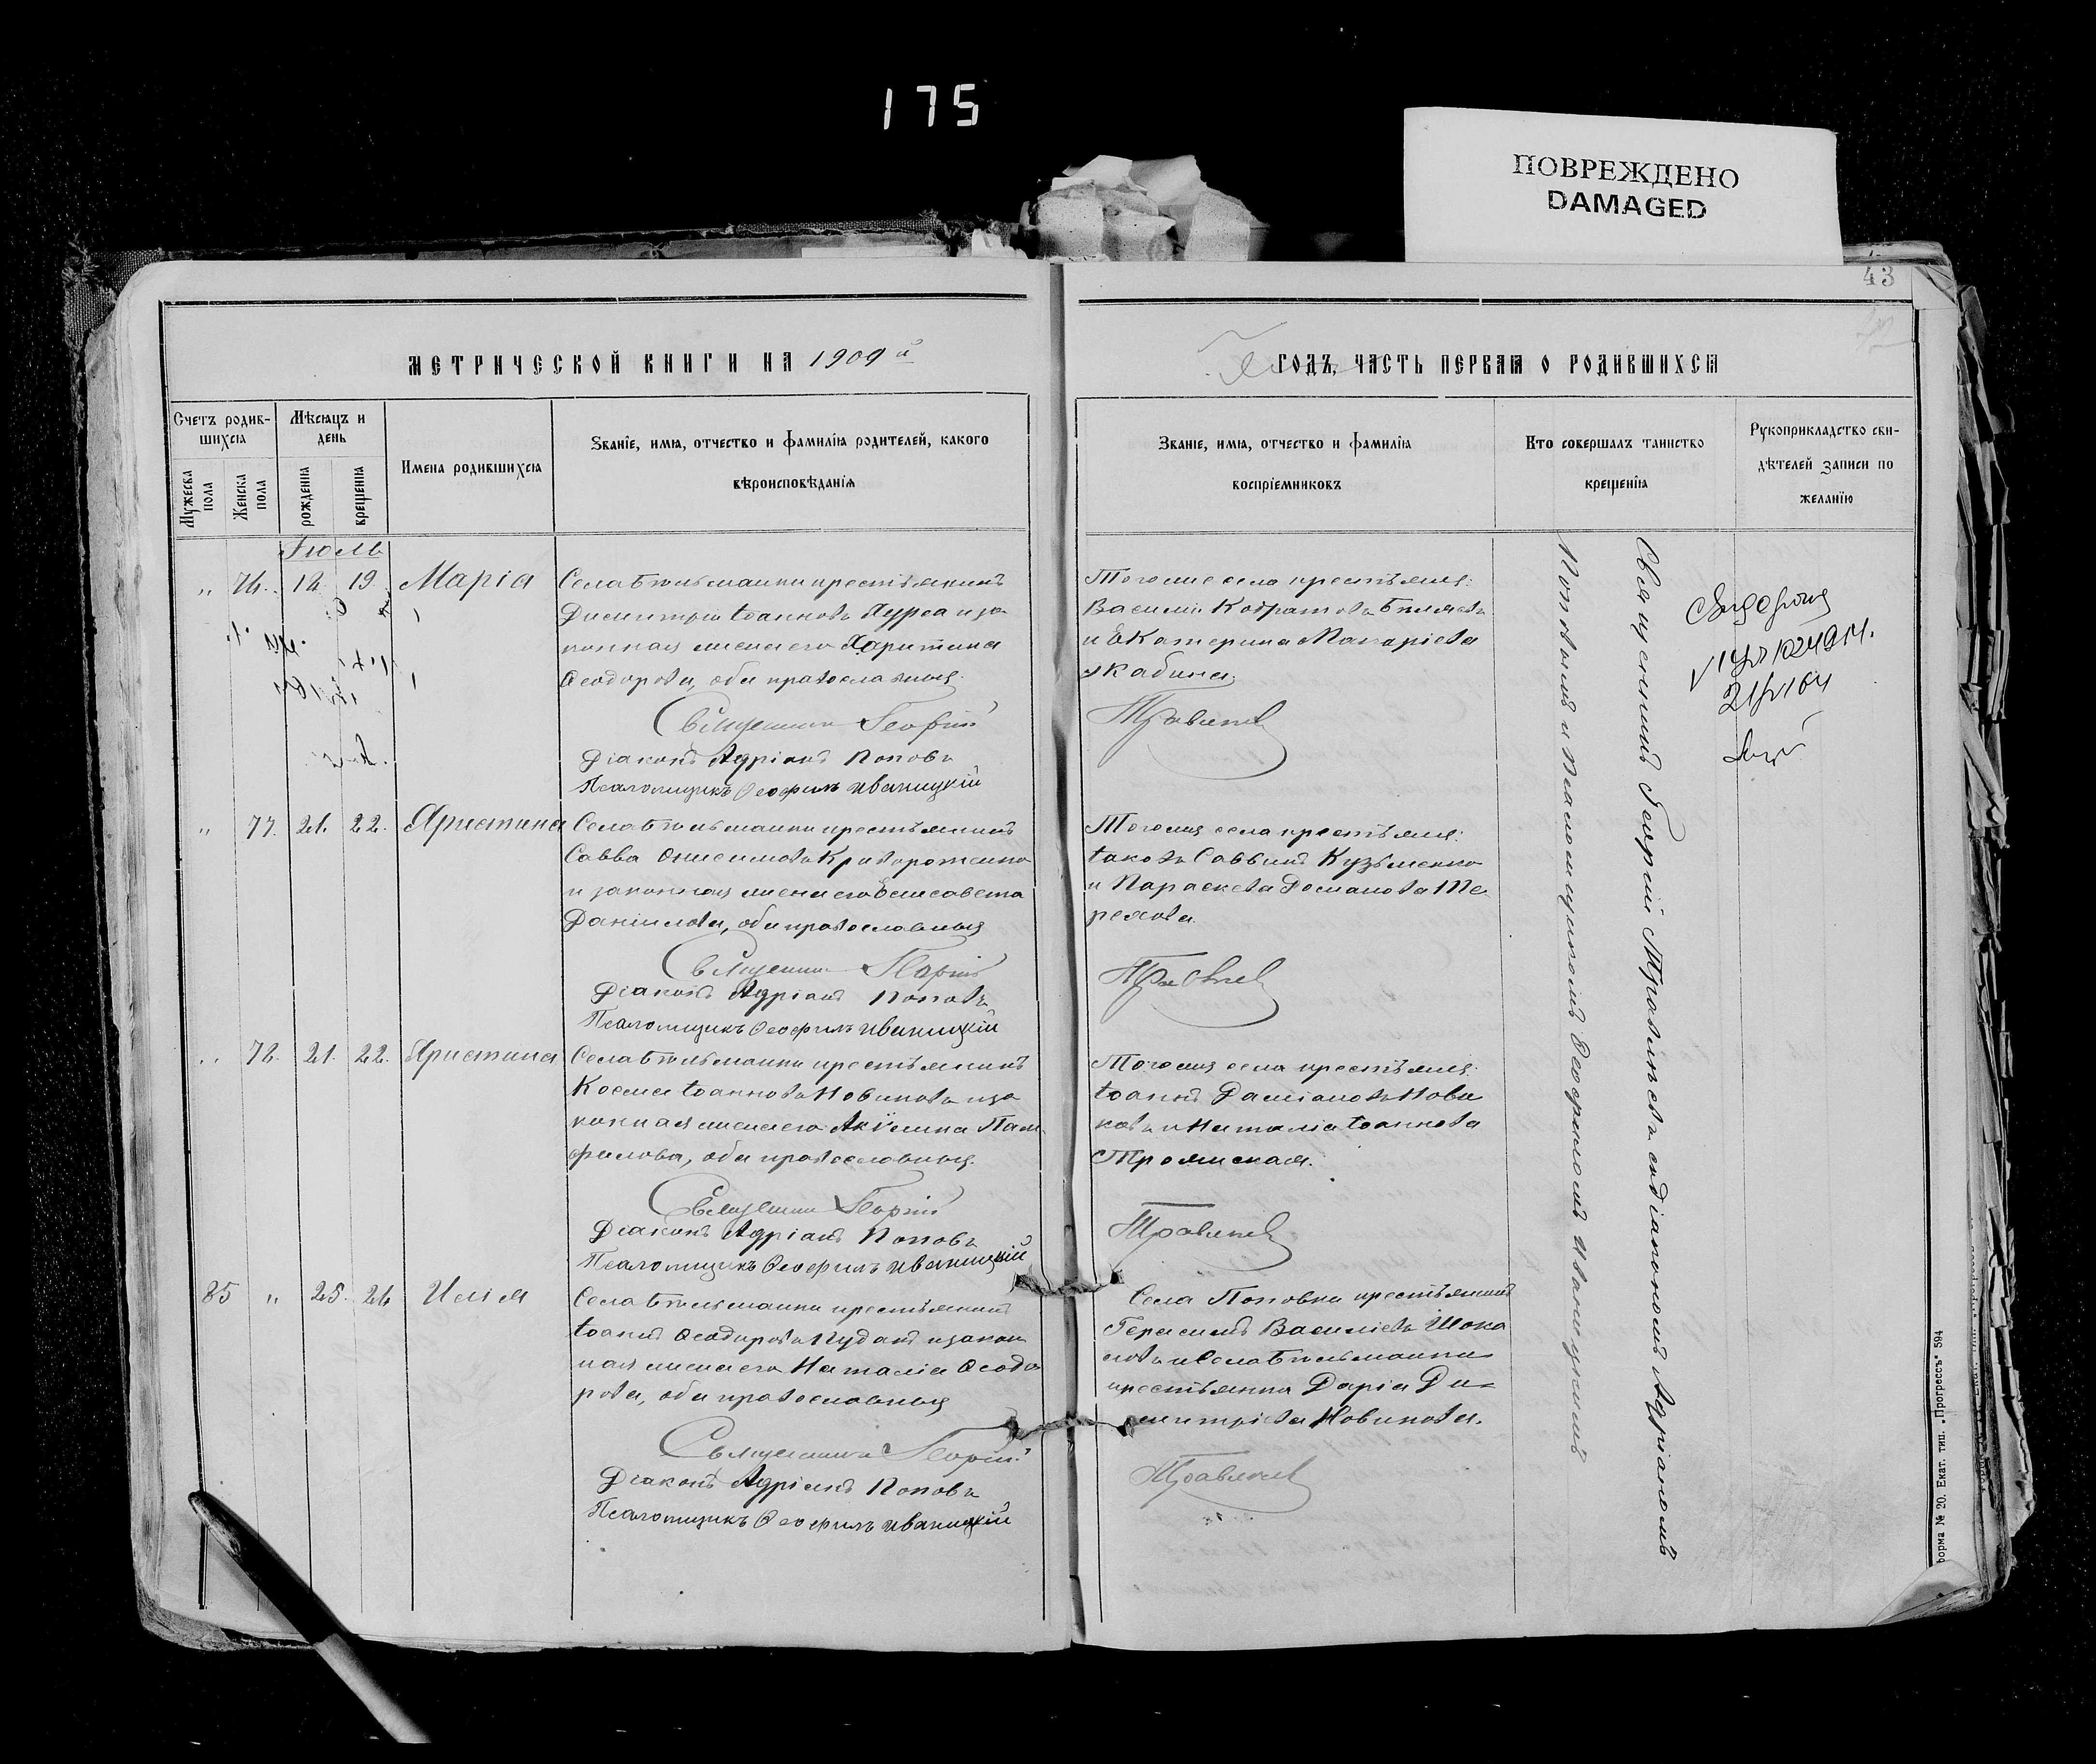 175
ПОВРЕЖДЕНО
DAMAGED
43
МЕТРИЧЕСКОЙ КНИГИ НА 1909 й
ГОДЪ, ЧАСТЬ ПЕРВАЯ О РОДИВШИХСЯ
Счетъ родив-
шихся
Мужеска
пола
Женска
пола
Мѣсяцъ и
день
рожденія
крещенія
Имена родившихся
Званіе, имя, отчество и фамилія родителей, какого
вѣроисповѣданія
Званіе, имя, отчество и фамилія
воспріемниковъ
Кто совершалъ таинство
крещенія
Рукоприкладство сви-
дѣтелей записи по
желанію
Іюль
„ 76. 18. 19. Марія
Села Бѣльманки крестьянинъ
Димитрій Іоанновъ и за
конная жена его Харитина
Ѳеодорова, оба православные.
Священникъ Георгій
Діаконъ Адріанъ Поповъ
Псаломщикъ Ѳеофилъ Иваницкій
Тогоже села крестьяне:
Василій Кодратовъ Бѣляевъ
и Екатерина Макаріева
Травинскій
„ 77. 21. 22. Христина
Села Бѣльманки крестьянинъ
Савва Онисимовъ Криворотенко
и законная жена его Елисавета
Даніилова, оба православные
Священникъ Георгій
Діаконъ Адріанъ Поповъ
Псаломщикъ Ѳеофилъ Иваницкій
Тогоже села крестьяне:
Іаковъ Саввинъ Кузьменко
и Параскева Романова Те
рехова.
„ 78. 21. 22. Христина
Села Бѣльманки крестьянинъ
Косма Іоанновъ Новиковъ и за
конная жена его Акилина Пам
филова, оба православные.
Священникъ Георгій
Діаконъ Адріанъ Поповъ
Псаломщикъ Ѳеофилъ Иваницкій
Тогоже села крестьяне:
Іоаннъ Даміановъ Нови
ковъ и Наталія Іоаннова
Троянская.
85 „ 25. 26 Илія
Села Бѣльманки крестьянинъ
Іоаннъ Ѳеодоровъ и закон
ная жена его Наталія Ѳеодо
рова, оба православные
Священникъ Георгій
Діаконъ Адріанъ Поповъ
Псаломщикъ Ѳеофилъ Иваницкій
Села Поповки крестьянинъ
Герасимъ Василіевъ Шока
ловъ и села Бѣльманки
крестьянка Дарія Ди=
митріева Новикова.
Священникъ Георгій съ діакономъ Адріаномъ
Поповымъ и псаломщикомъ Ѳеофиломъ Иваницкимъ
форма № 20. Екат. тип. „Прогрессъ“ 594